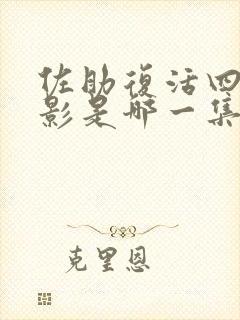 佐助復活四
影是哪一集
克里恩